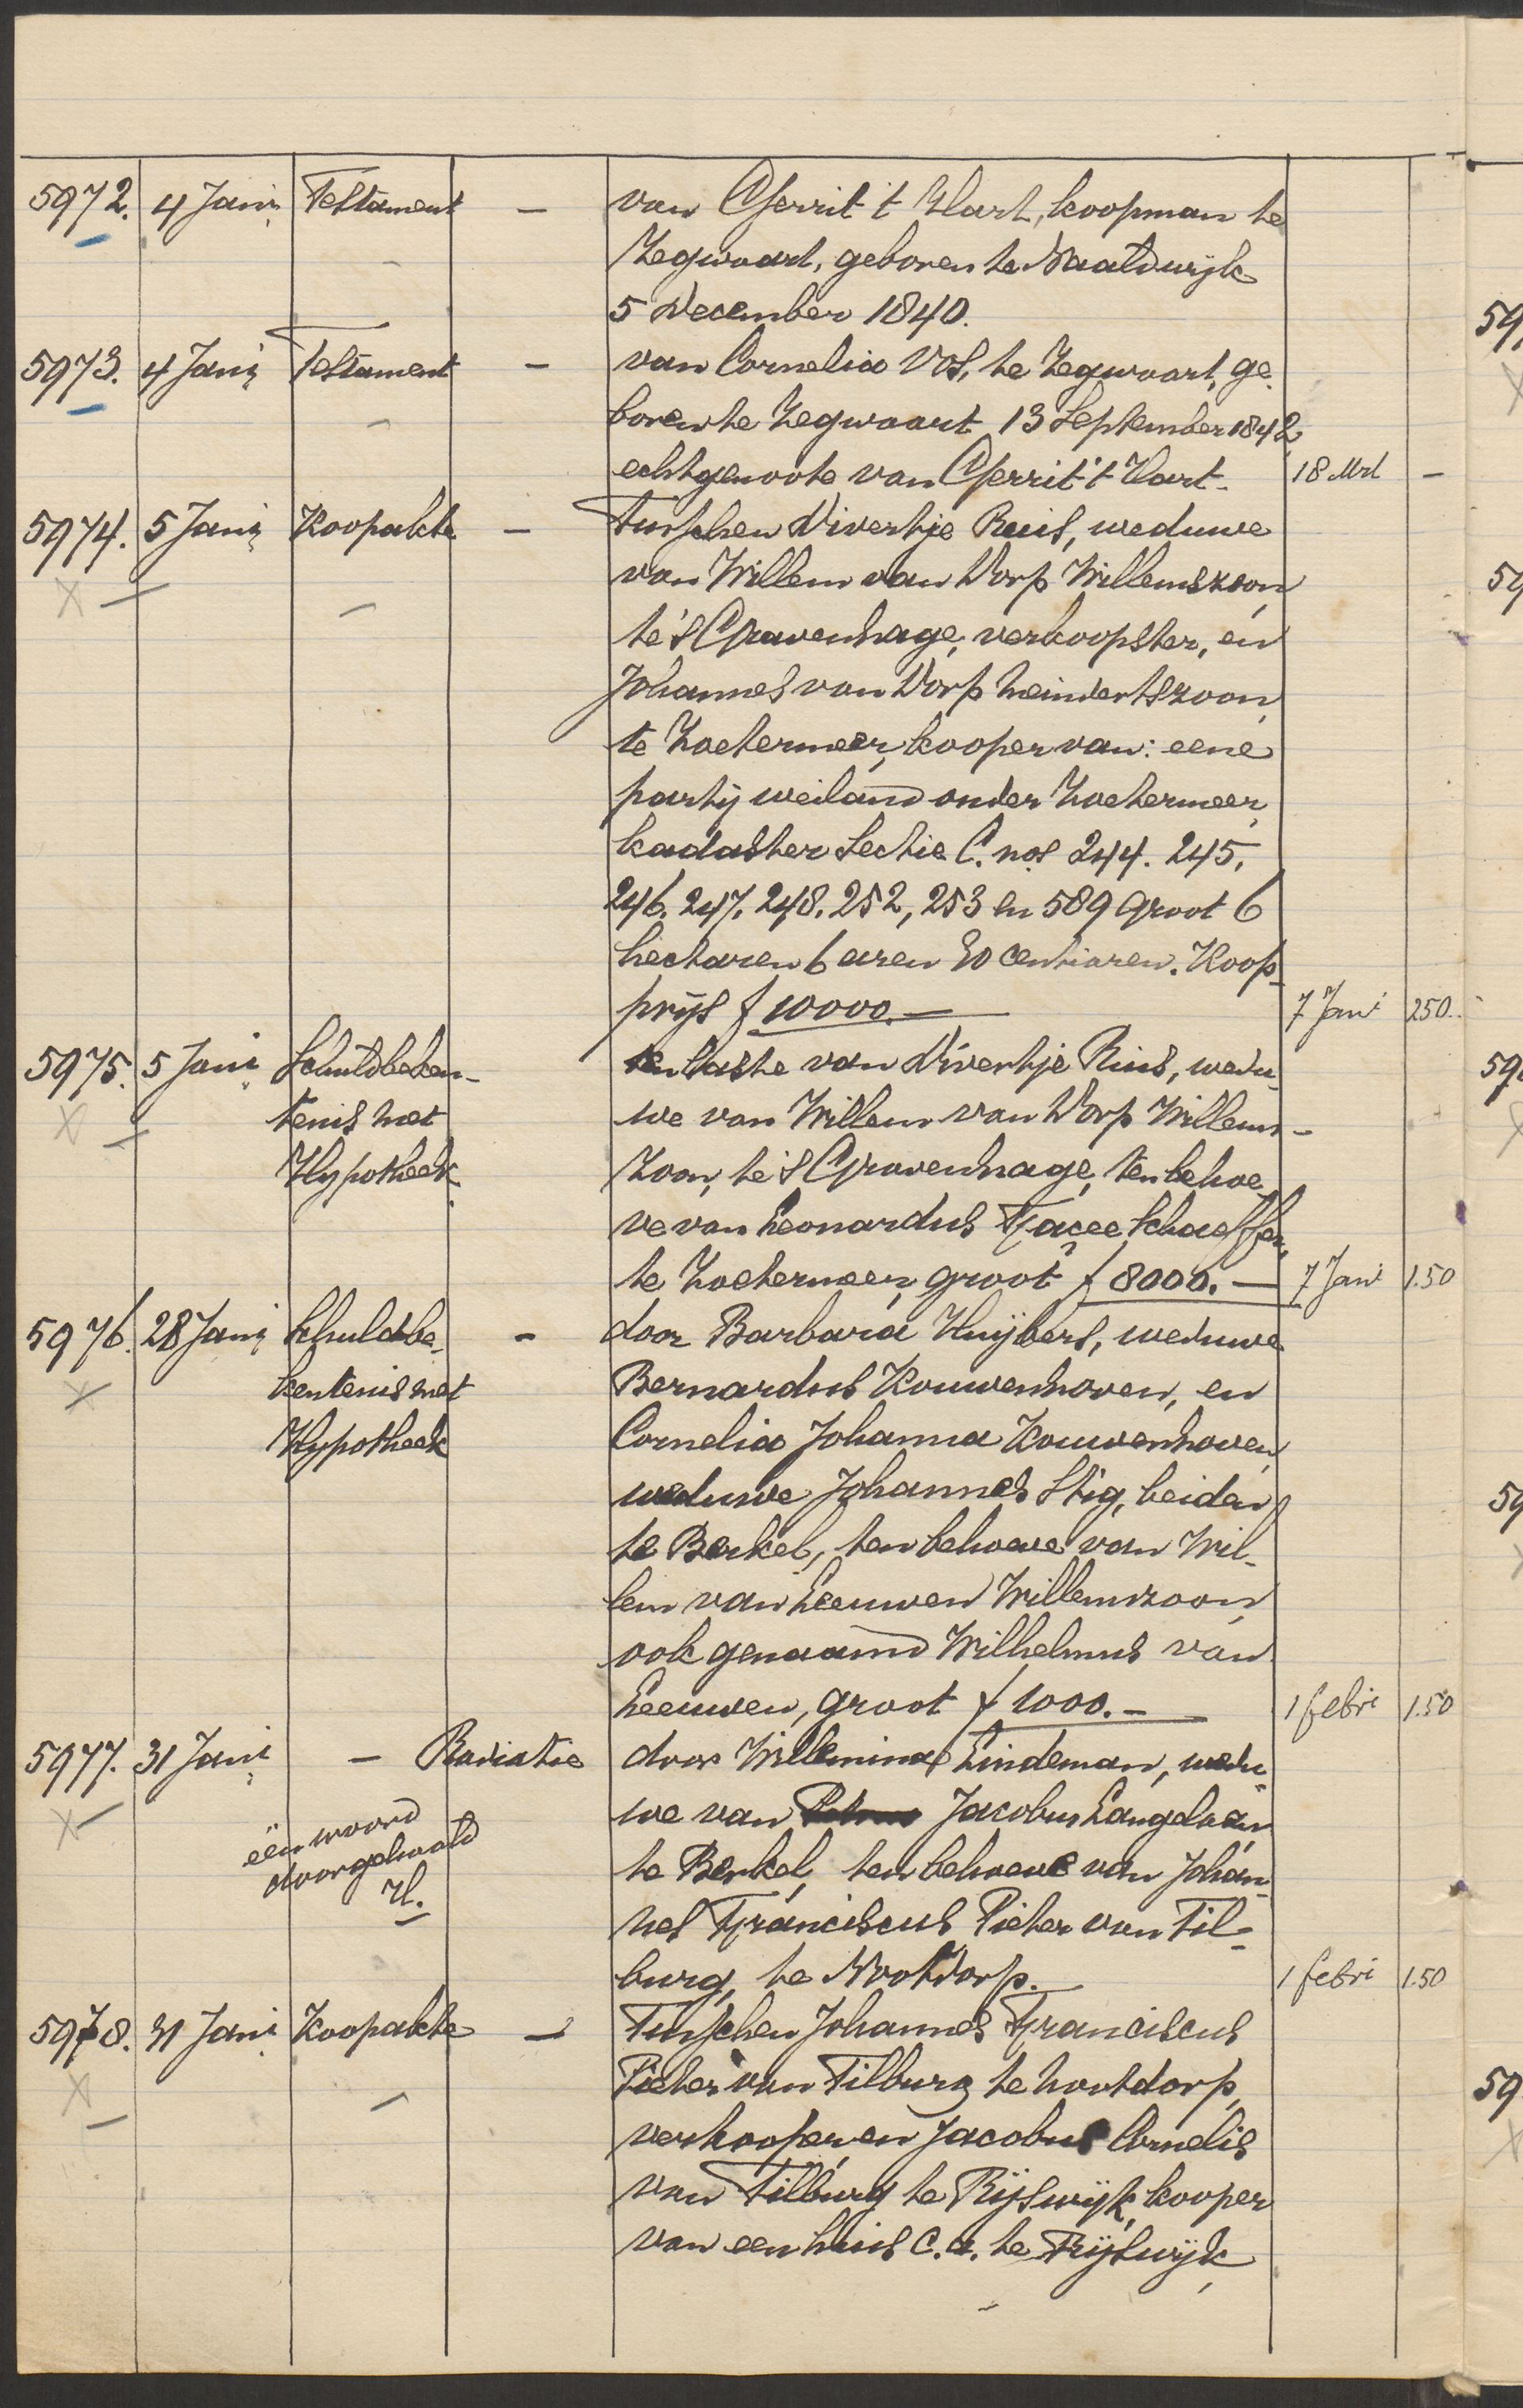 5972. 4 Jani Testament - van Gerrit 't Hart, koopman te
Zegwaart, geboren te Naaldwijk
5 December 1840.
5973. 4 Jani Testament - van Cornelia Vos, te Zegwaart, ge-
boren te Zegwaart 13 September 1842,
echtgenoote van Gerrit 't Hart. 18 Mrt -
5974. 5 Jani Koopakte - Tusschen Divertje Ruis, weduwe
van Willem van Dorp Willemszoon,
te 's Gravenhage, verkoopster, en
Johannes van Dorp Meindertszoon,
te Zoetermeer, kooper van: eene
partij weiland onder Zoetermeer,
kadaster Sectie C. nos 244. 245,
246. 247. 248. 252, 253 en 589 groot 6
hectaren 6 aren 80 centiaren. Koop-
prijs f 10000.- 7 Jani 250.
5975. 5 Jani Schuldbeken- ten laste van Divertje Ruis, wedu-
tenis met we van Willem van Dorp Willems-
Hypotheek. zoon, te 's Gravenhage, ten behoe-
ve van Leonardus Schaeffer,
te Zoetermeer, groot f 8000.- 7 Jani 1.50
5976. 28 Jani Schuldbe- - door Barbara Huijbers, weduwe
kentenis met Bernardus Kouwenhoven, en
Hypotheek Cornelia Johanna Kouwenhoven,
weduwe Johannes Stig, beiden
te Berkel, ten behoeve van Wil-
lem van Leeuwen Willemszoon,
ook genaamd Wilhelmus van
Leeuwen, groot f 1000.- 1 febri 1.50
5977. 31 Jani - Radiatie door Willemina Lindeman, wedu-
we van Jacobus Langelaan
één woord
doorgehaald
H.
te Berkel, ten behoeve van Johan-
nes Franciscus Pieter van Til-
burg, te Nootdorp. 1 febri 1.50
5978. 31 Jani Koopakte - Tusschen Johannes Franciscus
Pieter van Tilburg te Nootdorp,
verkooper, en Jacobus Cornelis
van Tilburg te Rijswijk, kooper
van een huis c.a. te Rijswijk,